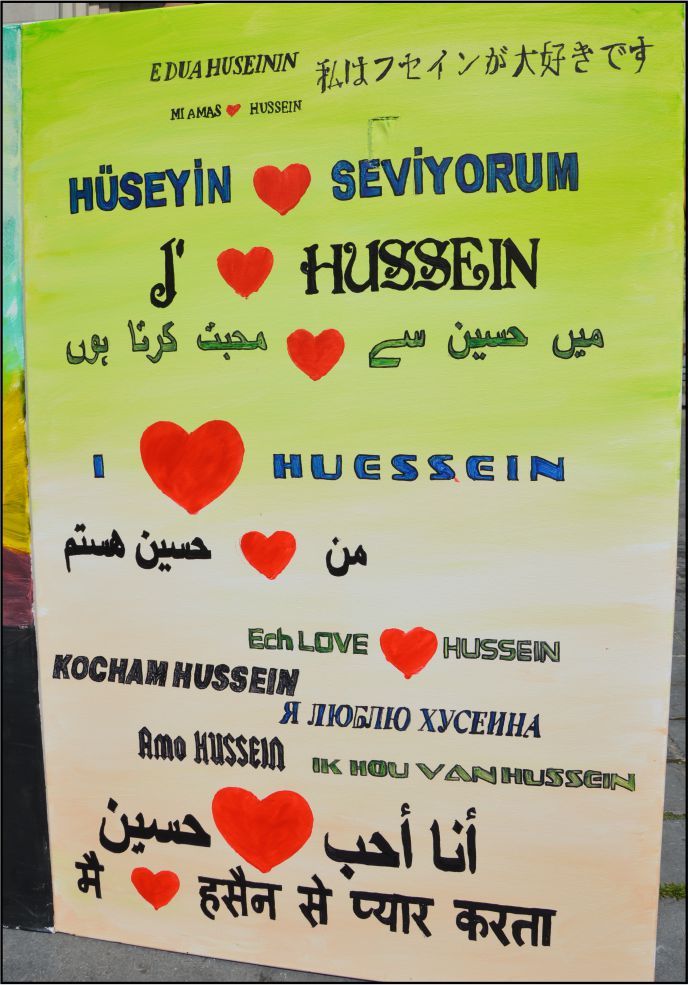 E DUA HUSEININ 私はフセインが大好きです
MI AMAS ❤ HUSSEIN
HÜSEYİN ❤ SEVİYORUM
J' ❤ HUSSEIN
میں حسین سے ❤ محبت کرتا ہوں
I ❤ HUESSEIN
من ❤ حسین هستم
Ech LOVE ❤ HUSSEIN
KOCHAM HUSSEIN
Я ЛЮБЛЮ ХУСЕИНА
Amo HUSSEIN
IK HOU VAN HUSSEIN
أنا أحب ❤ حسين
मै ❤ हसैन से प्यार करता